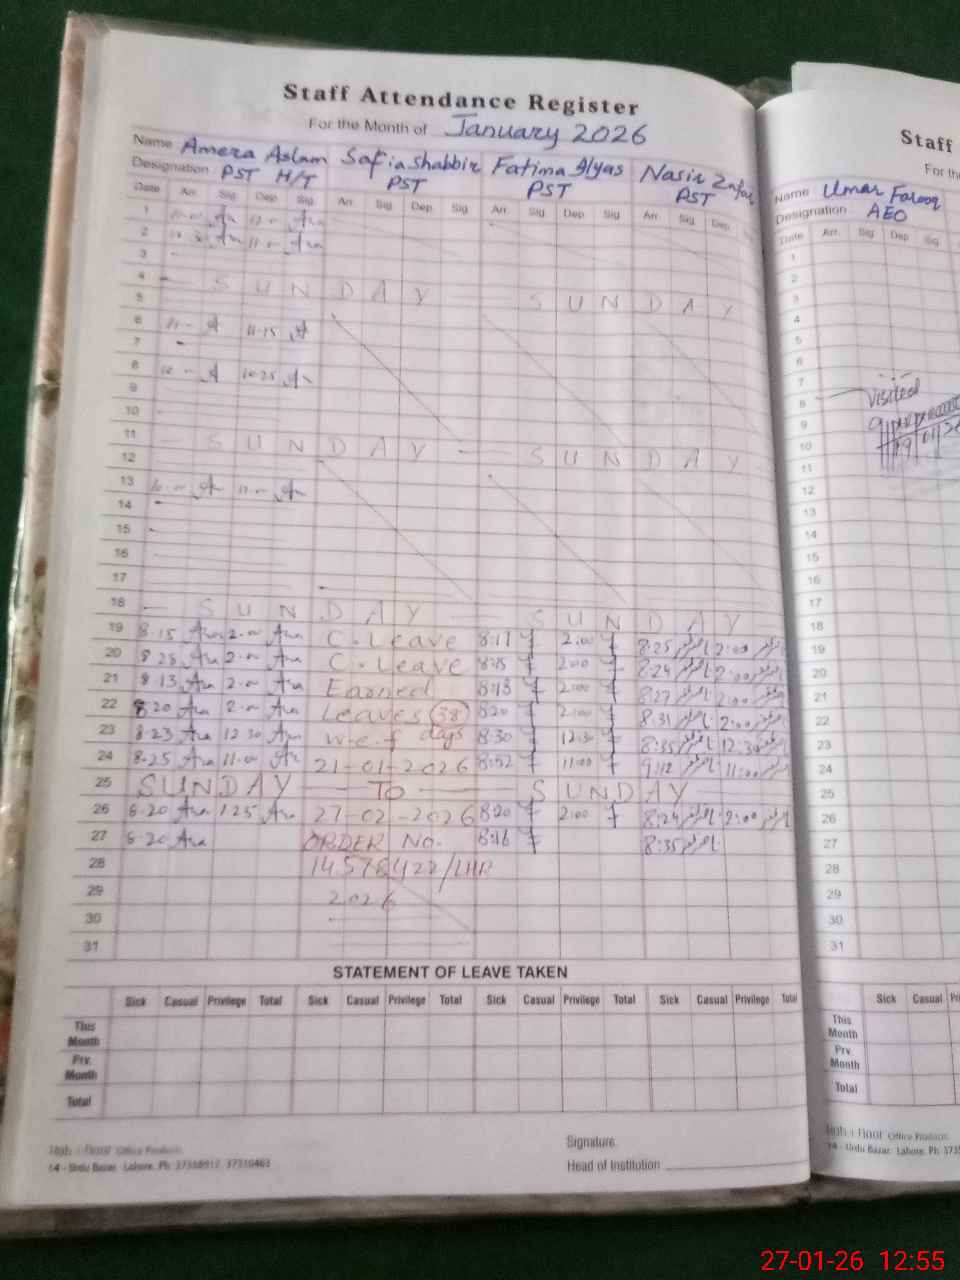 Staff Attendance Register
For the Month of January 2026
Name Amera Aslam Safia Shabbir Fatima Ilyas Nasir Zafar
Designation PST H/T PST PST PST
Date Arr. Sig Dep. Sig. Arr. Sig. Dep. Sig Arr. Sig Dep. Sig Arr. Sig. Dep.
1
2
3
4 SUNDAY SUNDAY
5
6 11.15
7
8 10.25
9
10
11 SUNDAY SUNDAY
12
13
14
15
16
17
18 SUNDAY SUNDAY
19 8.15 2.00 C. Leave 8:17 2:00 8:25 2:00
20 8.25 2.00 C. Leave 8:15 2:00 8:24 2:00
21 8.13 2.00 Earned 8:13 2:00 8:27 2:00
22 8.20 2.00 Leaves (38) 8:20 2:00 8:31 2:00
23 8.23 12.30 w.e.f days 8:30 12:30 8:35 12:30
24 8.25 11.00 21-01-2026 8:52 11:00 9:12 11:00
25 SUNDAY TO SUNDAY
26 8.20 1.25 27-02-2026 8:20 2:00 8:24 2:00
27 8.20 ORDER NO. 8:16 8:35
28 14578422/LHR
29 2026
30
31
STATEMENT OF LEAVE TAKEN
Sick Casual Privilege Total Sick Casual Privilege Total Sick Casual Privilege Total Sick Casual Privilege Total
This Month
Prv. Month
Total
Signature.
Head of Institution
Office Products
14 - Urdu Bazar. Lahore. Ph: 37358912 37310463
Staff
For the
Name Umar Farooq
Designation AEO
Date Arr. Sig Dep. Sig
1
2
3
4
5
6
7
8 Visited
9
10
11
12
13
14
15
16
17
18
19
20
21
22
23
24
25
26
27
28
29
30
31
Sick Casual
This Month
Prv. Month
Total
Office Products
14 - Urdu Bazar. Lahore. Ph
27-01-26 12:55